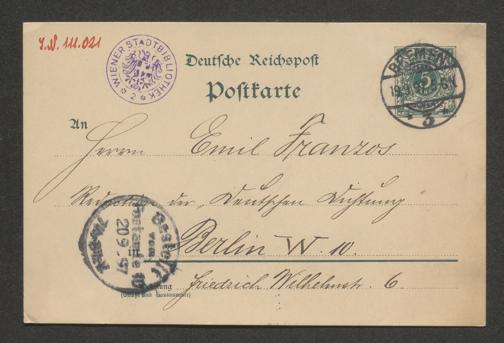 I.N. 111.021
WIENER STADTBIBLIOTHEK
* 2 *
Deutsche Reichspost
Postkarte
BREMEN
5
3
An
Herrn Emil Franzos
Redaktion der „Deutschen Dichtung"
in Berlin W. 10.
Friedrich Wilhelmstr. 6
Bestellt
vom
Postamte 10
20 9. 97
(Straße und Hausnummer)